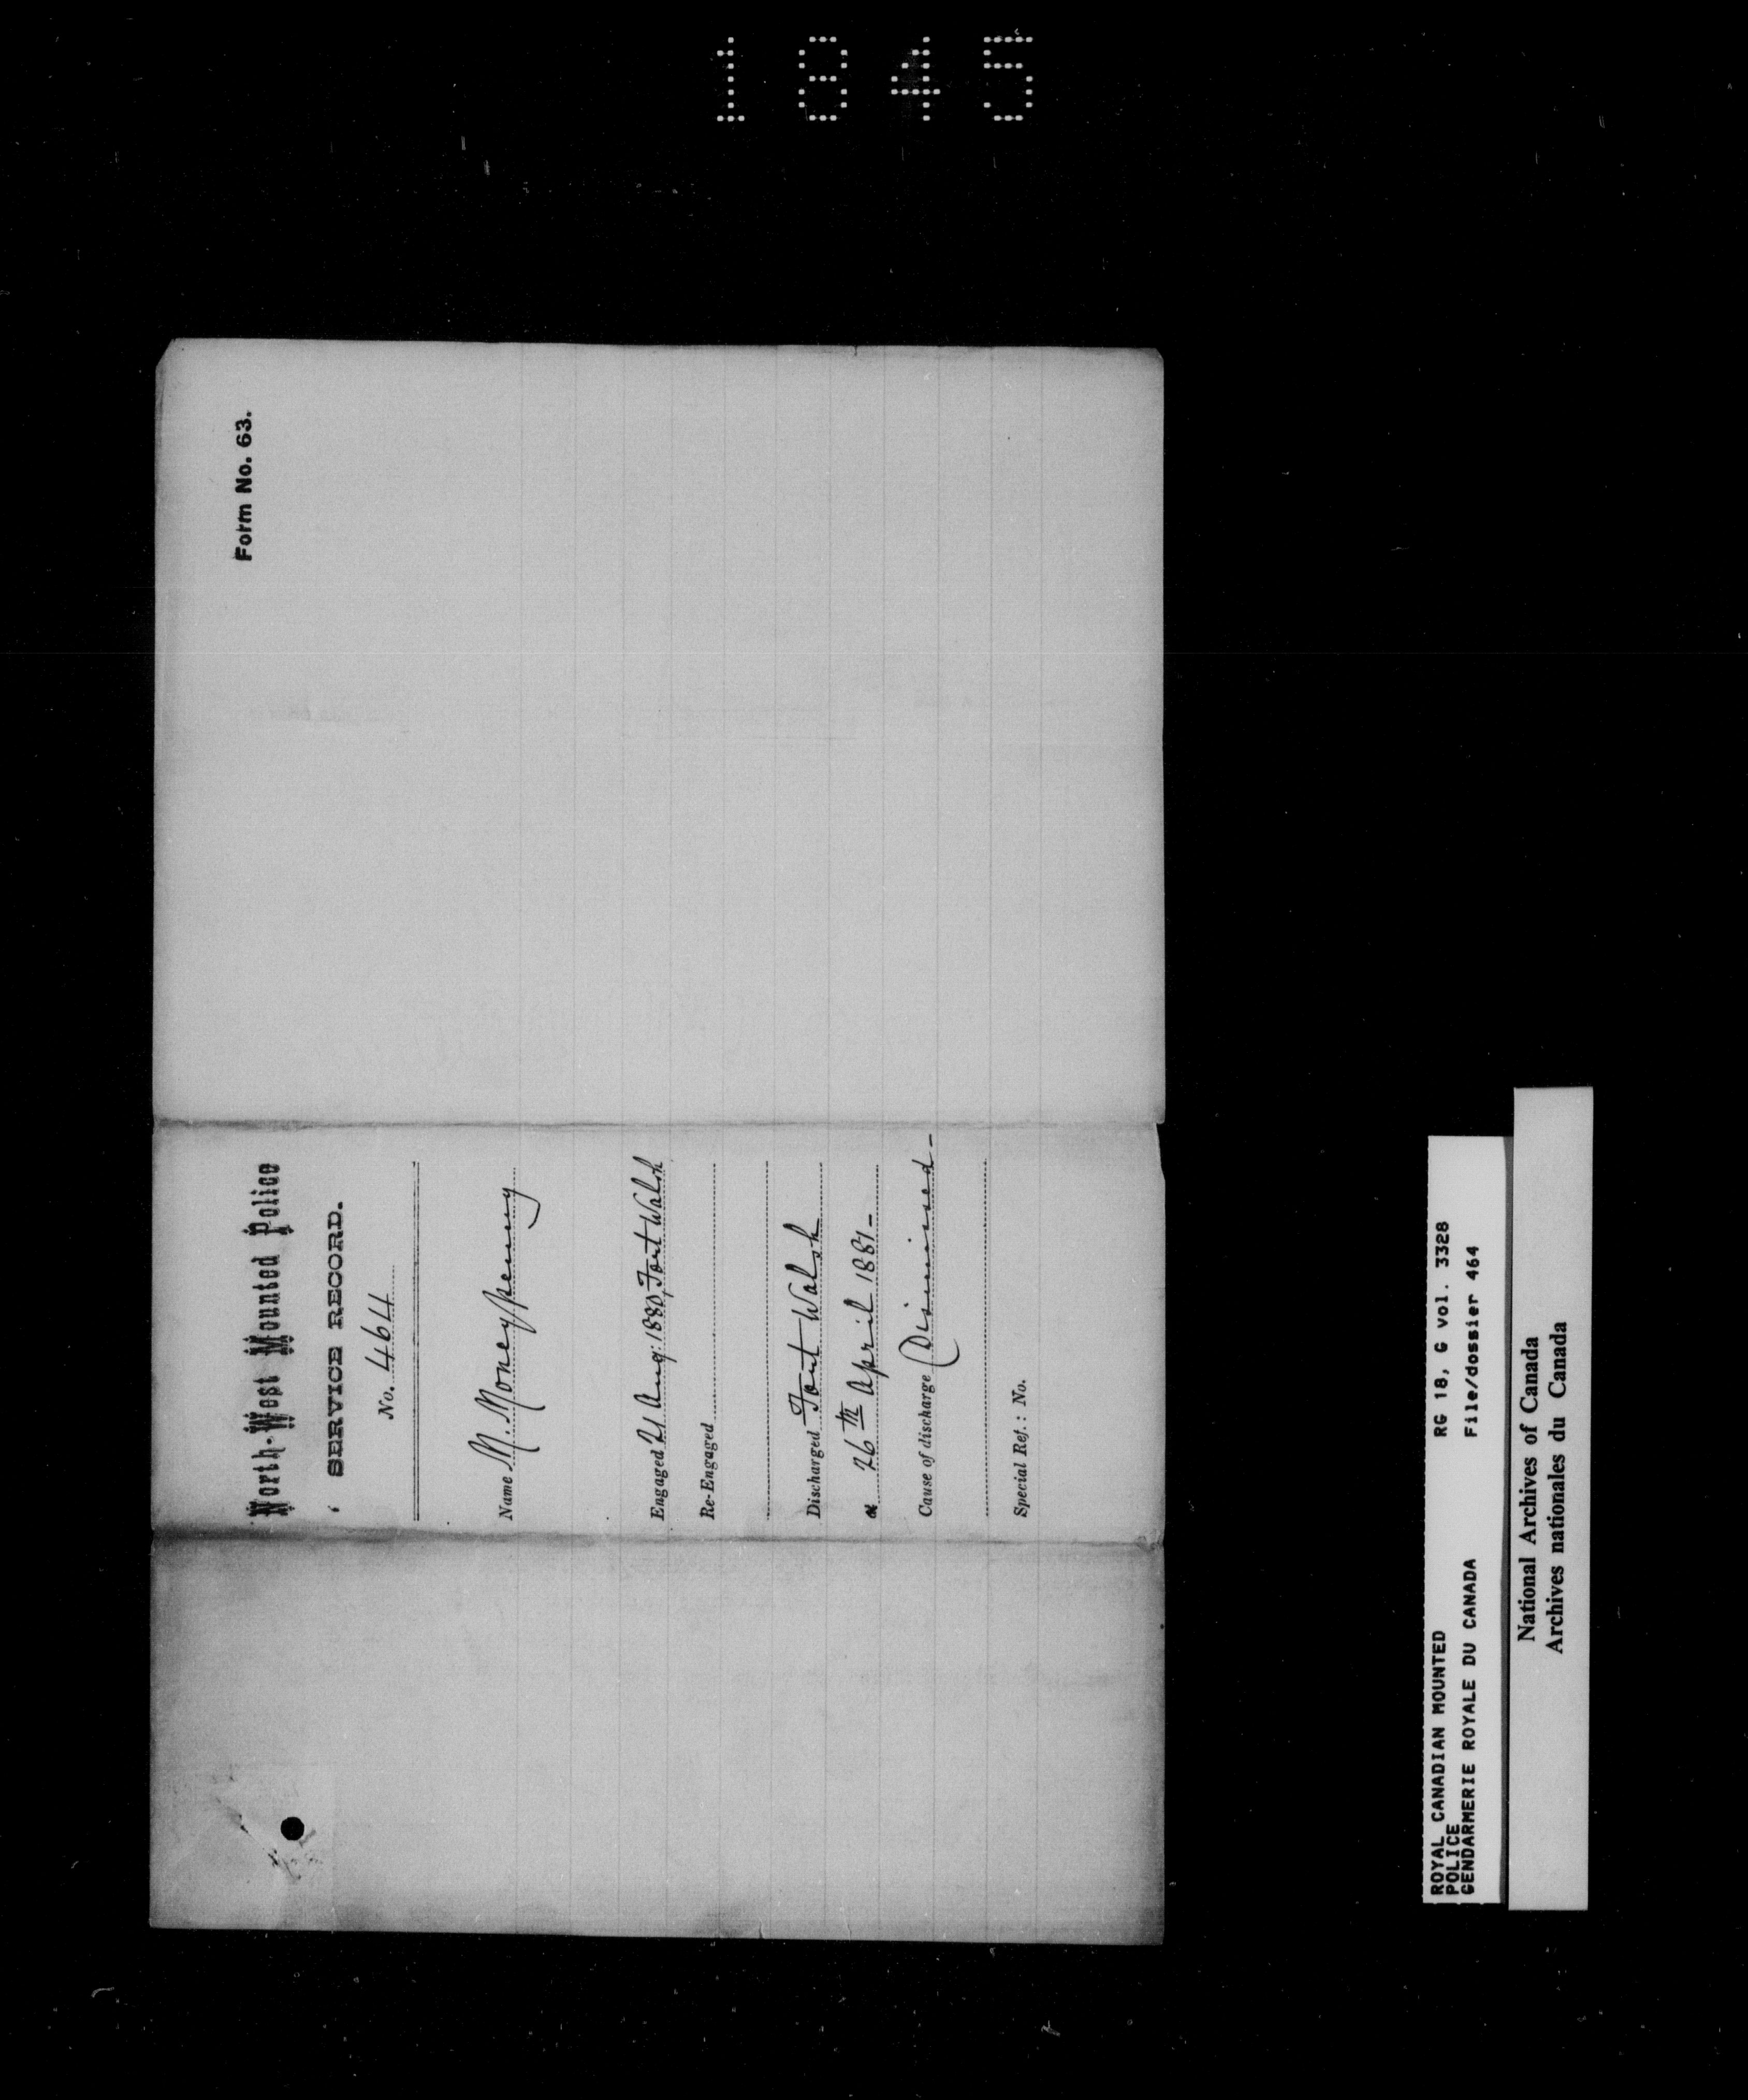 1845
Form No. 63.
North-West Mounted Police
SERVICE RECORD.
No. 464
Name M. Moneypenny
Engaged 21 Aug: 1880, Fort Walsh
Re-Engaged
Discharged Fort Walsh
26th April 1881-
Cause of discharge Dismissed-
Special Ref.: No.
ROYAL CANADIAN MOUNTED RG 18, G vol. 3328
POLICE
GENDARMERIE ROYALE DU CANADA File/dossier 464
National Archives of Canada
Archives nationales du Canada